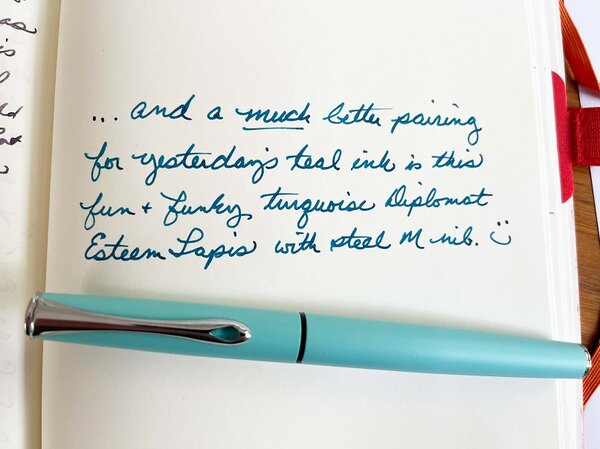 ... and a much better pairing
for yesterday's teal ink is this
fun + funky, turquoise Diplomat
Esteem Lapis with steel M nib. :)